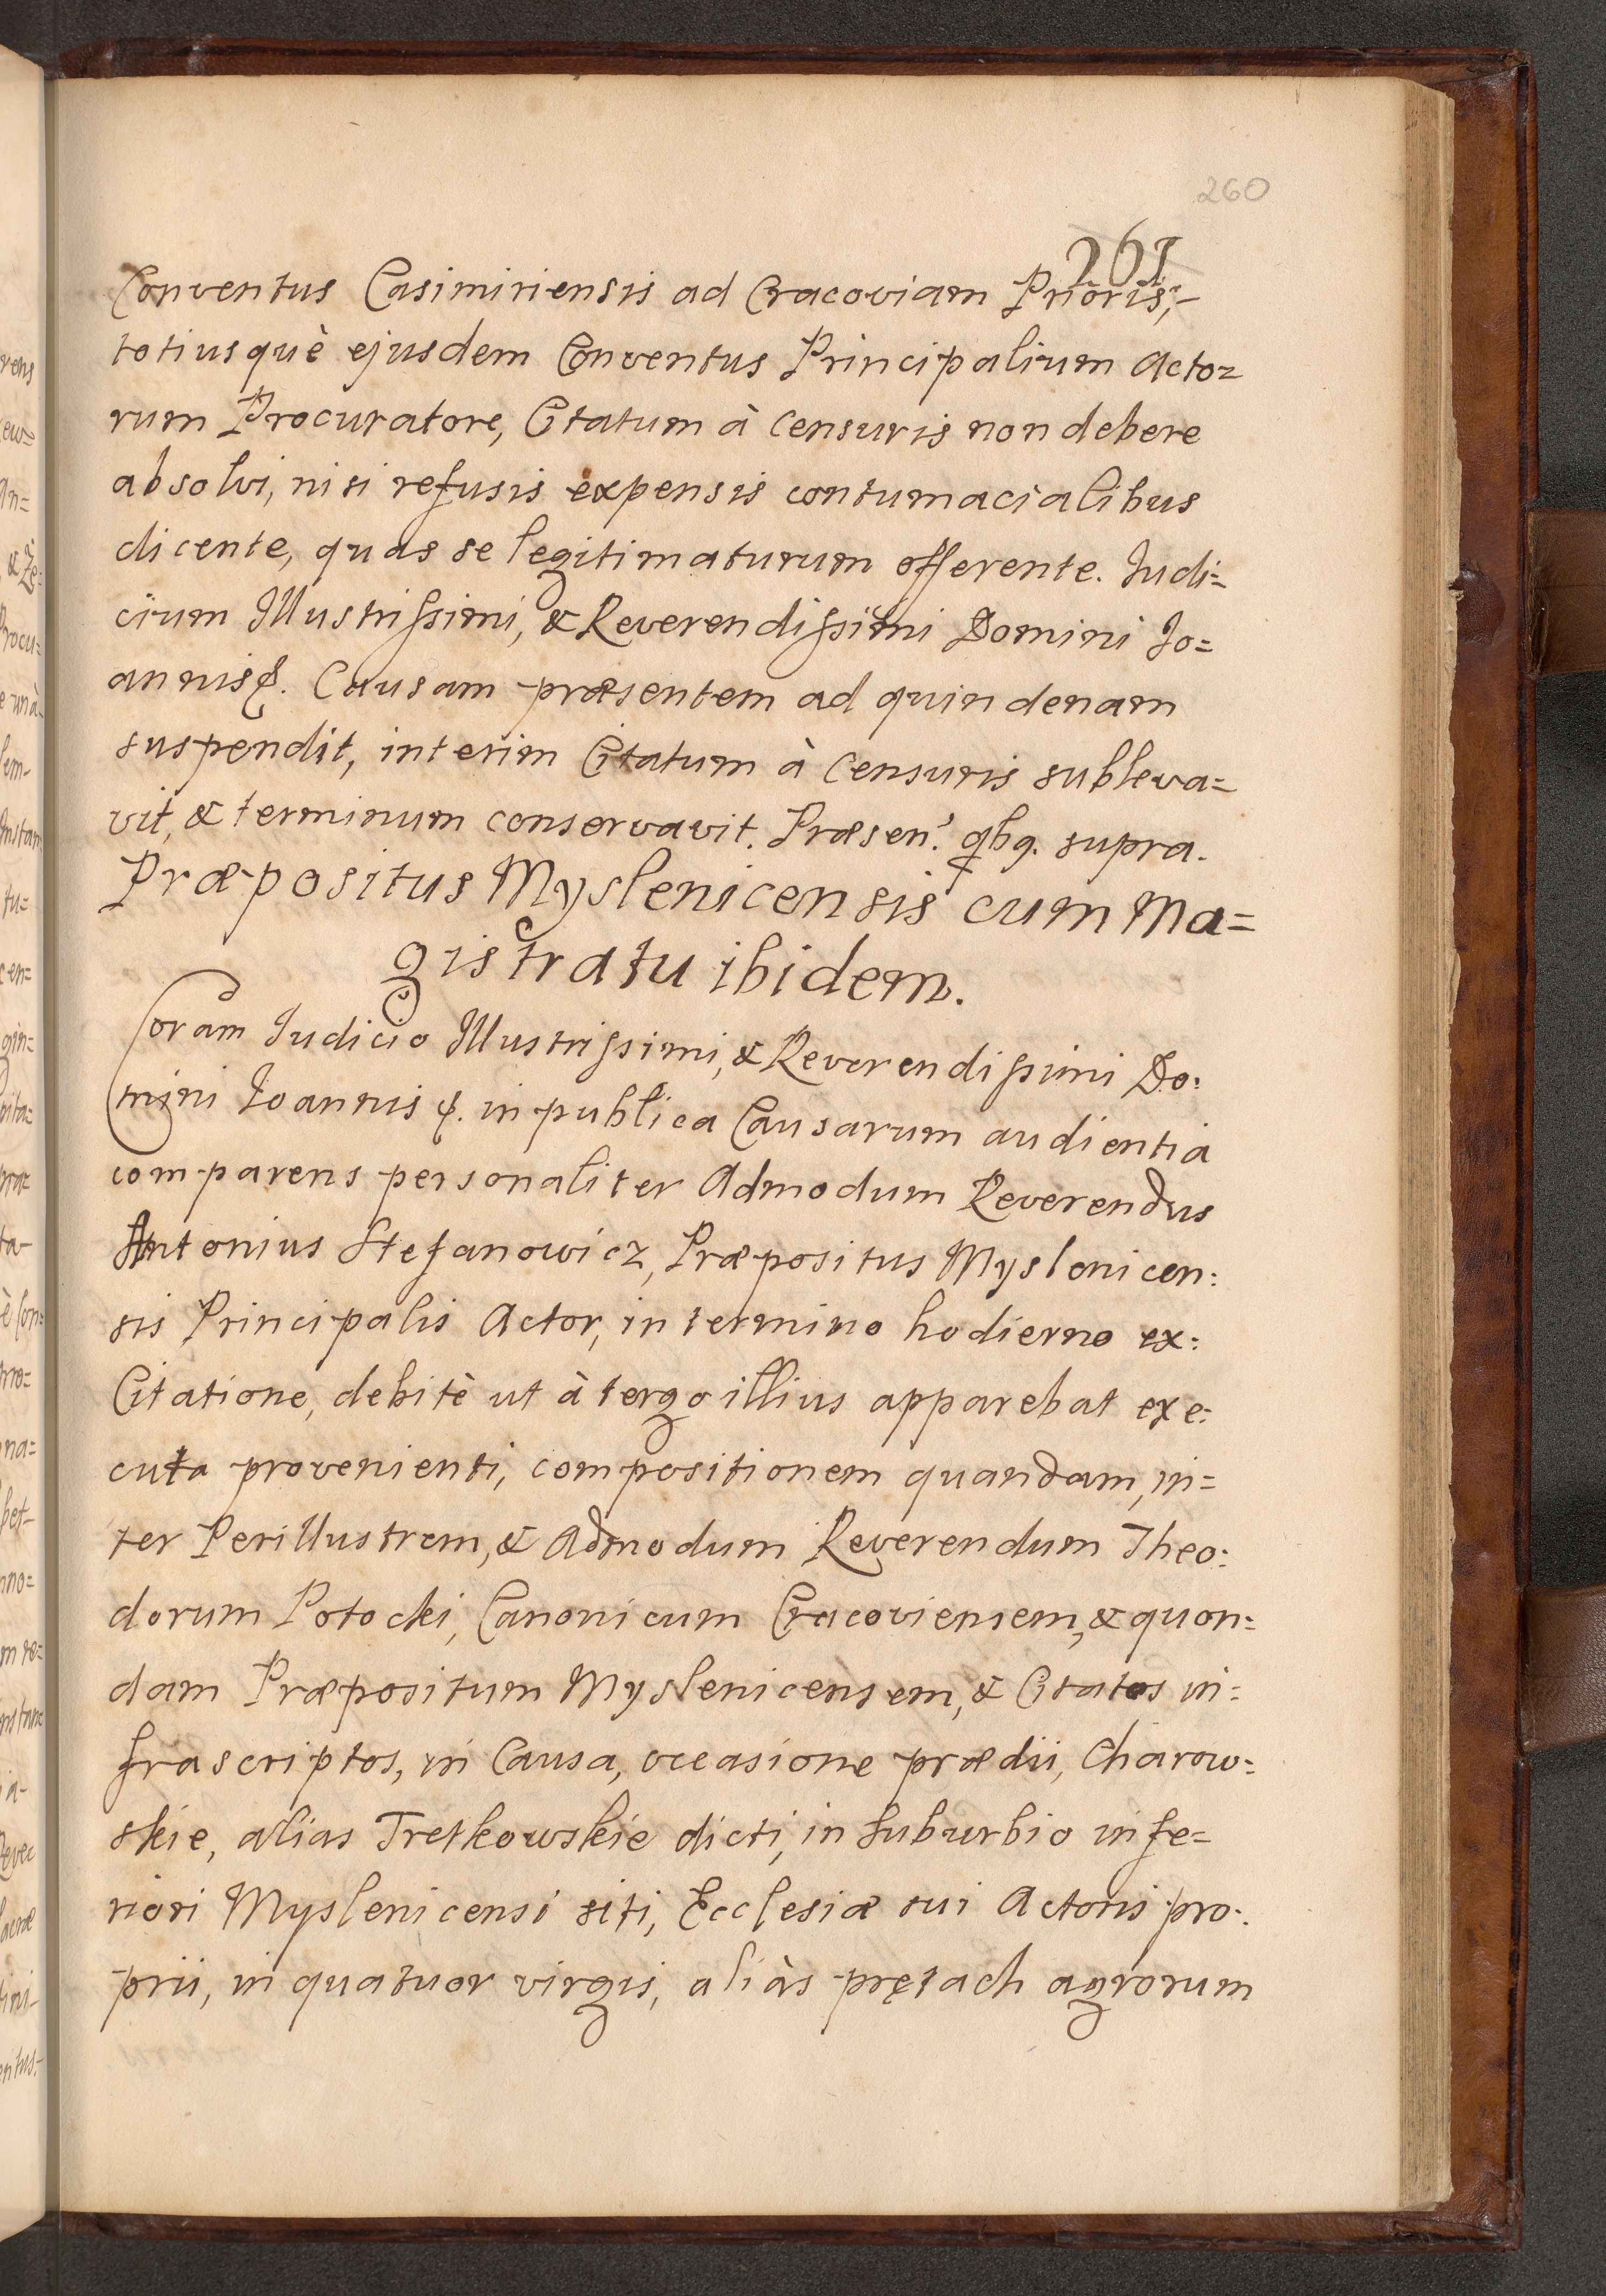 260
261
Conventus Casimiriensis ad Cracoviam Prioris,-
totiusquè ejusdem Conventus Principalium Acto=
rum Procuratore, Citatum à Censuris non debere
absolvi, nisi refusis expensis contumacialibus
dicente, quas se legitimaturum offerente. Judi=
cium Illustrissimi, & Reverendissimi Domini Jo=
annis &. Causam præsentem ad quindenam
suspendit, interim Citatum à Censuris subleva=
vit, & terminum conservavit. Præsen: qbg. supra.
Præpositus Myslenicensis cum Ma=
gistratu ibidem.
Coram Judicio Illustrissimi, & Reverendissimi Do:
mini Joannis &. in publica Causarum audientia
comparens personaliter Admodum Reverendus
Antonius Stefanowicz, Præpositus Myslenicen:
sis Principalis Actor, in termino hodierno ex:
Citatione, debitè ut à tergo illius apparebat exe:
cuta provenienti, compositionem quandam, in=
ter Perillustrem, & Admodum Reverendum Theo:
dorum Potocki, Canonicum Cracoviensem, & quon:
dam Præpositum Myslenicensem, & Citatos in:
frascriptos, in Causa, occasione prædii, Charow:
skie, alias Tretkowskie dicti, in suburbio infe=
riori Myslenicensi siti, Ecclesiæ sui Actoris pro:
prii, in quatuor virgis, aliàs prętach agrorum